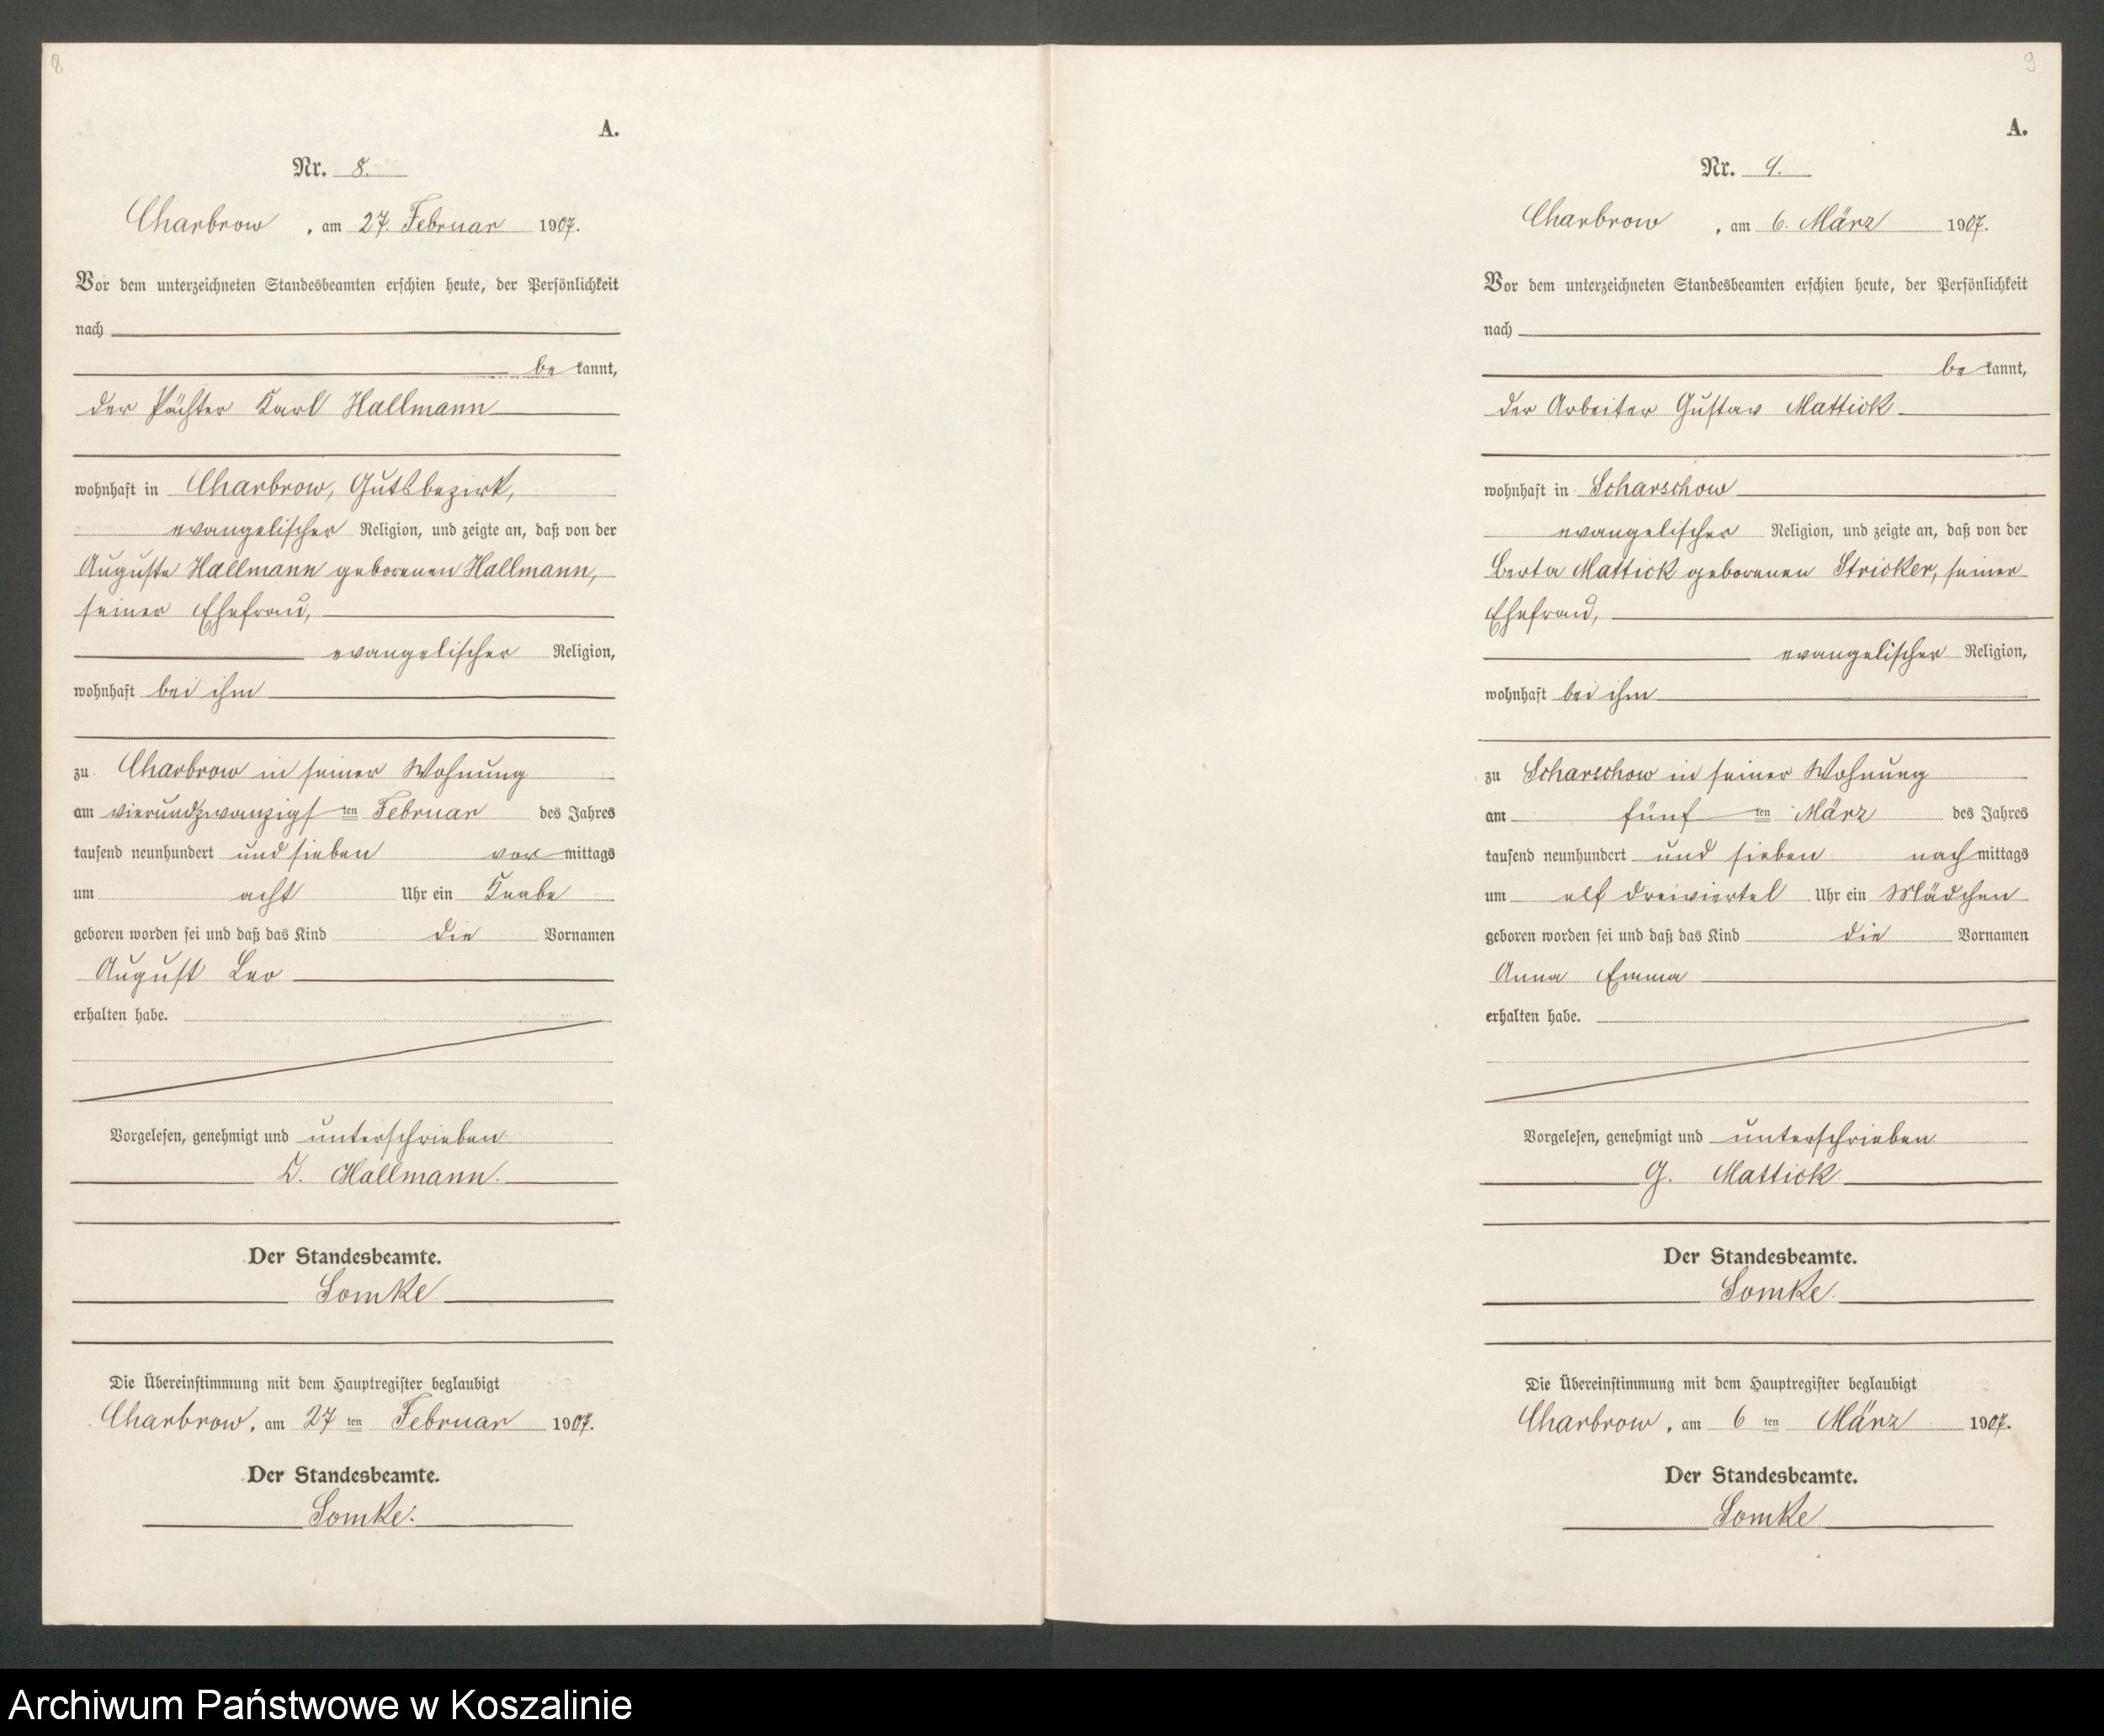 8
A.
Nr. 8.
Charbrow, am 27. Februar 1907.
Vor dem unterzeichneten Standesbeamten erschien heute, der Persönlichkeit
nach
be kannt,
der Pächter Karl Hallmann
wohnhaft in Charbrow, Gutsbezirk,
evangelischer Religion, und zeigte an, daß von der
Auguste Hallmann geborenen Hallmann,
seiner Ehefrau,
evangelischer Religion,
wohnhaft bei ihm
zu Charbrow in seiner Wohnung
am vierundzwanzigs ten Februar des Jahres
tausend neunhundert und sieben vor mittags
um acht Uhr ein Knabe
geboren worden sei und daß das Kind die Vornamen
August Leo
erhalten habe.
Vorgelesen, genehmigt und unterschrieben
K. Hallmann.
Der Standesbeamte.
Lomke
Die Übereinstimmung mit dem Hauptregister beglaubigt
Charbrow, am 27 ten Februar 1907.
Der Standesbeamte.
Lomke.
9
A.
Nr. 9.
Charbrow, am 6. März 1907.
Vor dem unterzeichneten Standesbeamten erschien heute, der Persönlichkeit
nach
be kannt,
der Arbeiter Gustav Mattick
wohnhaft in Scharschow
evangelischer Religion, und zeigte an, daß von der
Berta Mattick geborenen Stricker, seiner
Ehefrau,
evangelischer Religion,
wohnhaft bei ihm
zu Scharschow in seiner Wohnung
am fünf ten März des Jahres
tausend neunhundert und sieben nach mittags
um elf dreiviertel Uhr ein Mädchen
geboren worden sei und daß das Kind die Vornamen
Anna Emma
erhalten habe.
Vorgelesen, genehmigt und unterschrieben
G. Mattick
Der Standesbeamte.
Lomke.
Die Übereinstimmung mit dem Hauptregister beglaubigt
Charbrow, am 6 ten März 1907.
Der Standesbeamte.
Lomke
Archiwum Państwowe w Koszalinie